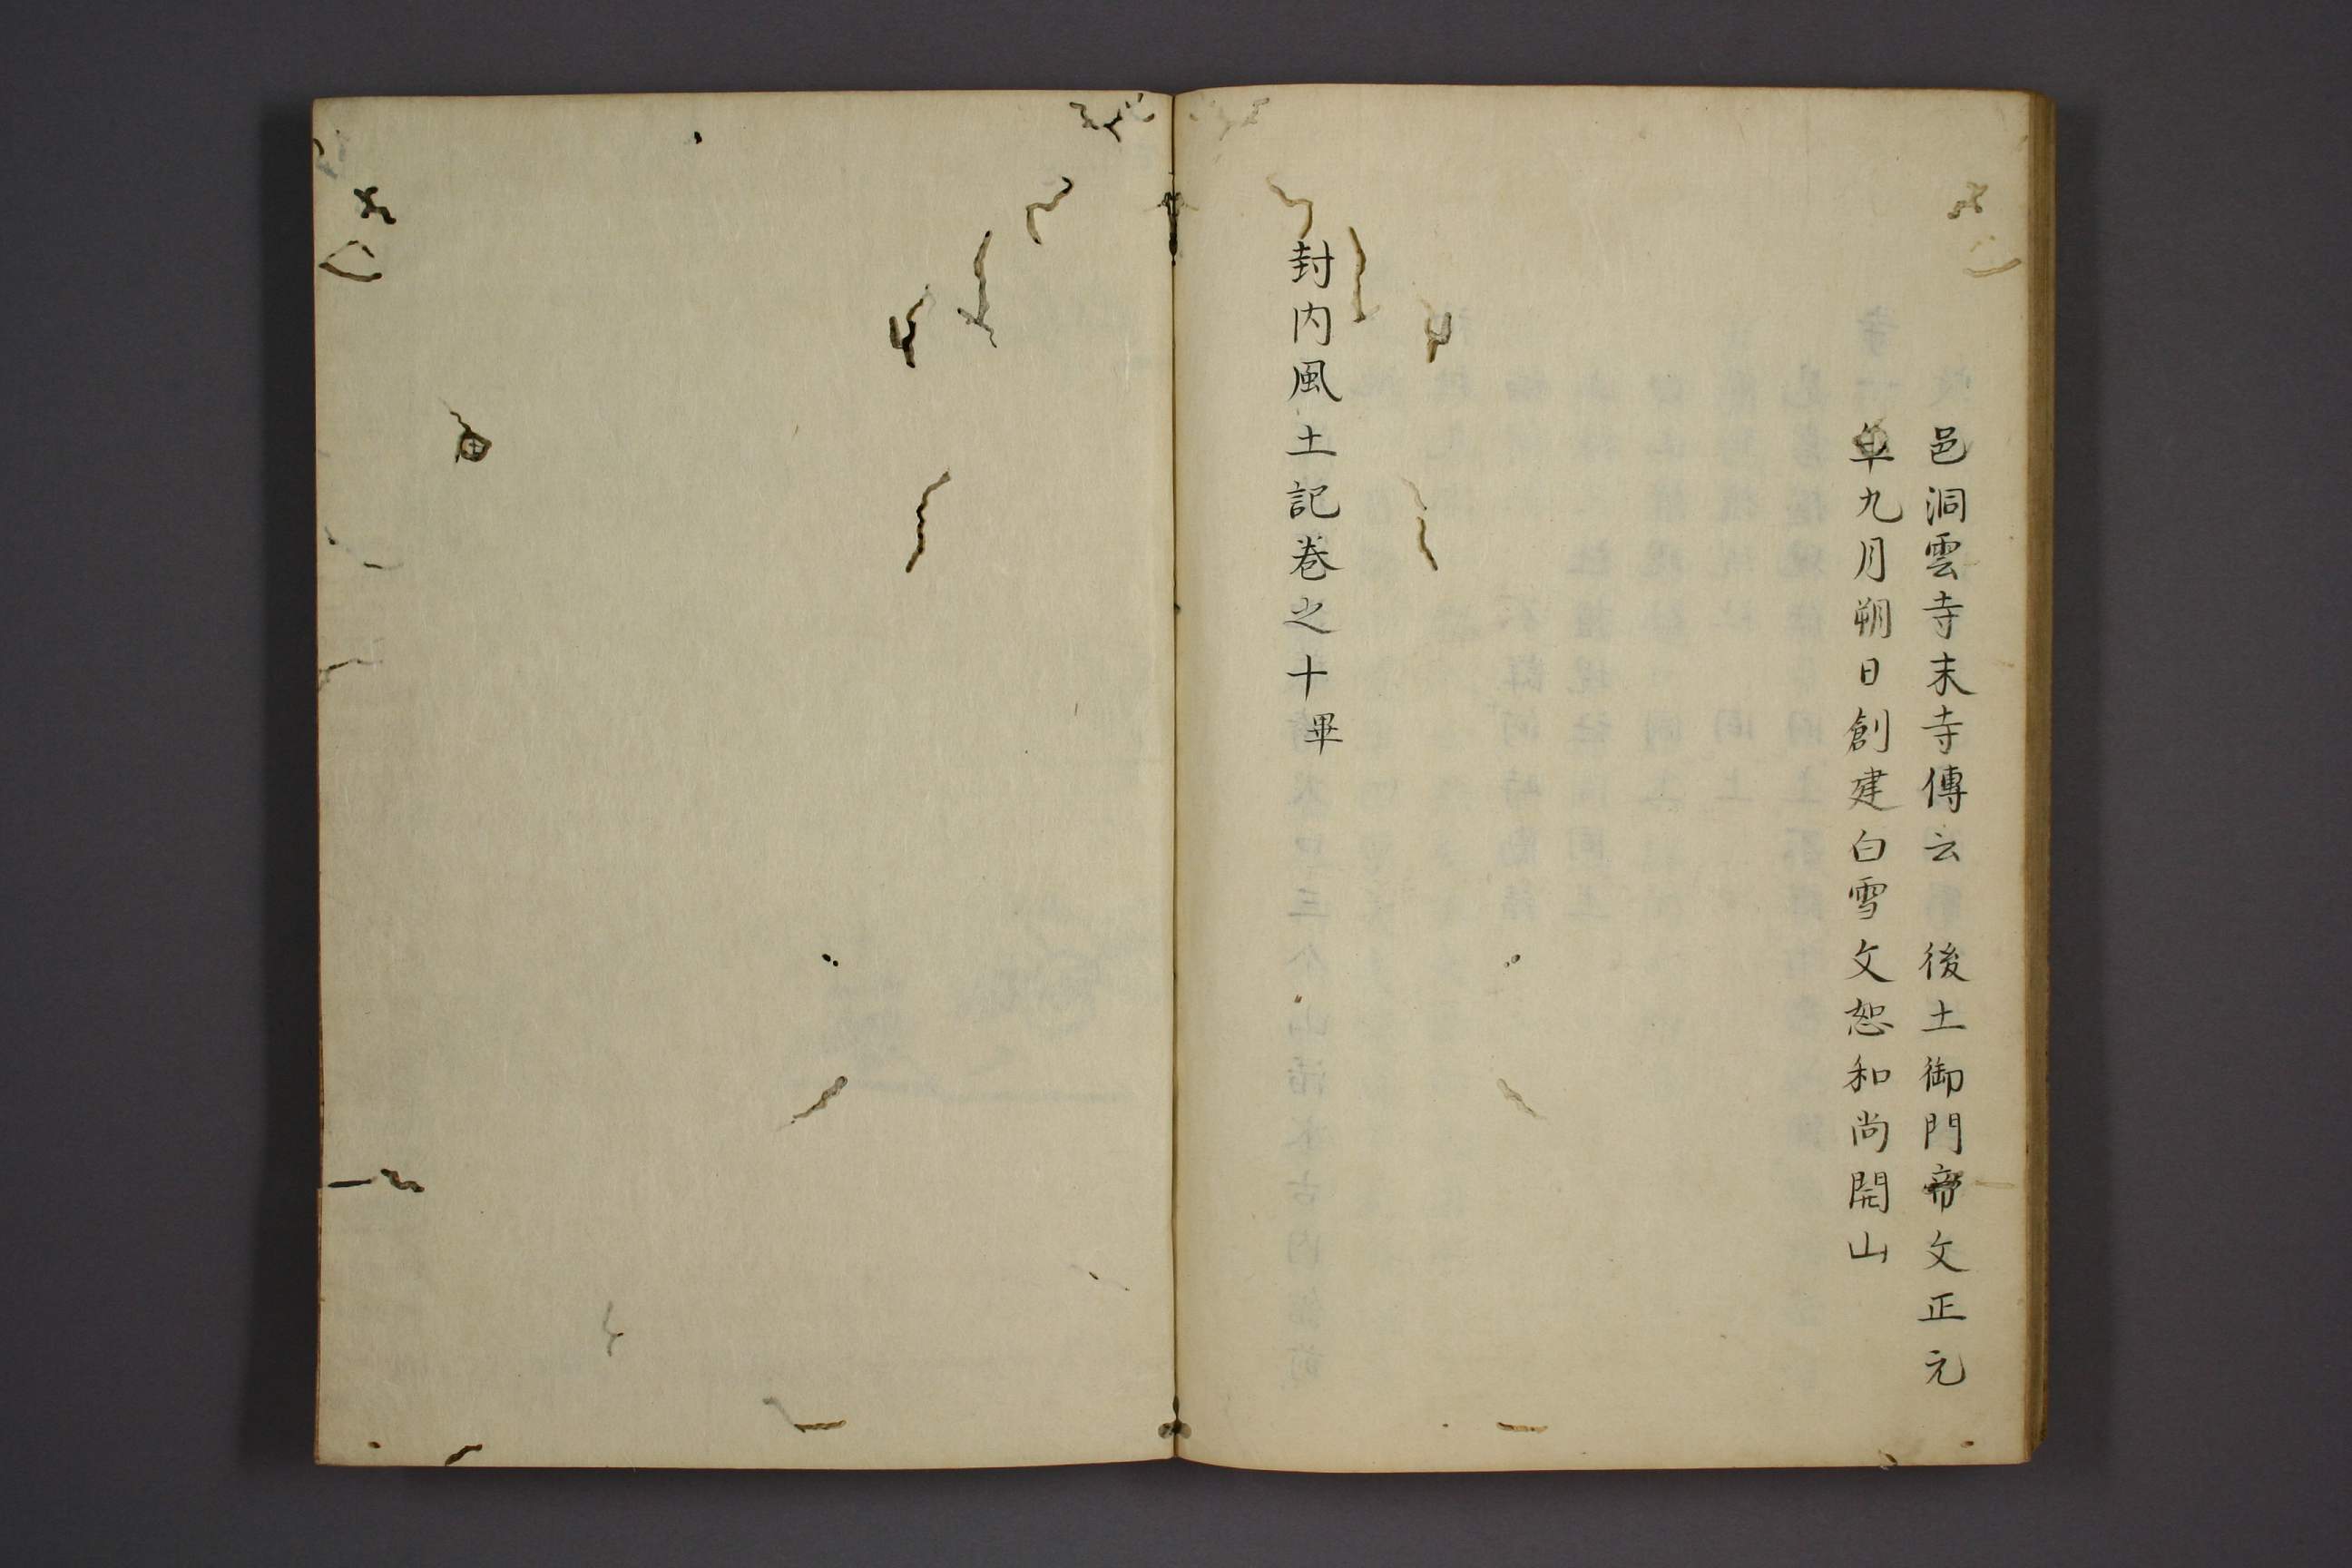 邑洞雲寺末寺傳云　後土御門帝文正元
年九月朔日創建白雪文恕和尚開山
封内風土記巻之十畢